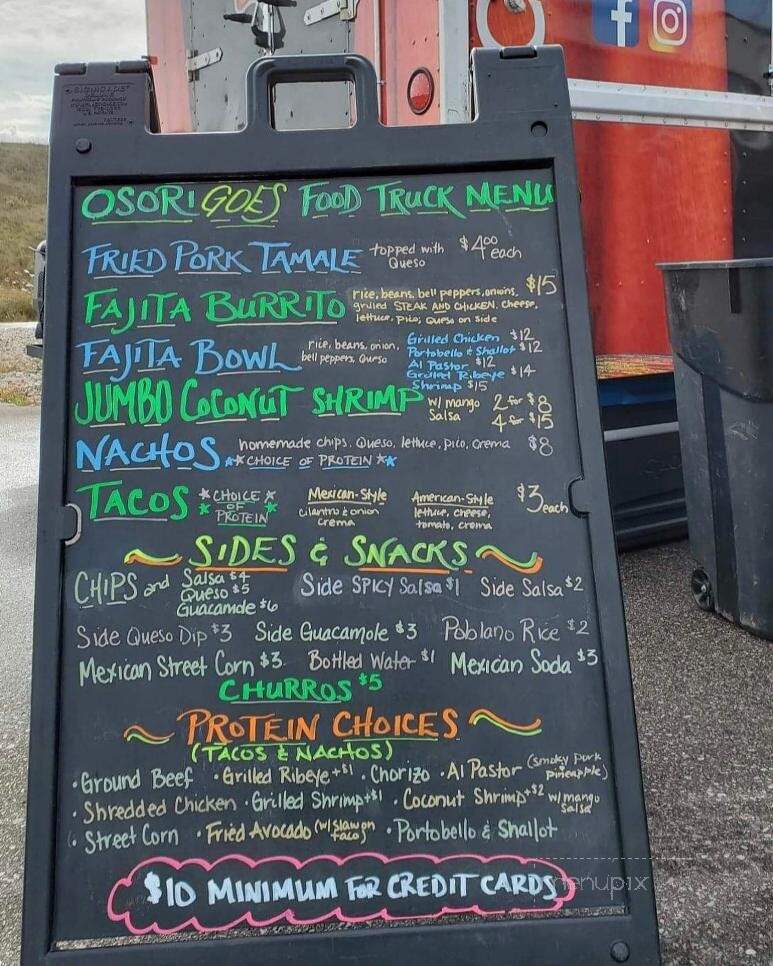 OSORI GOES FOOD TRUCK MENU
FRIED PORK TAMALE topped with Queso $4.00 each
FAJITA BURRITO rice, beans, bell peppers, onions, $15
grilled STEAK AND CHICKEN, cheese,
lettuce, pico, Queso on side
FAJITA BOWL rice, beans, onion,
bell peppers, Queso
Grilled Chicken $12
Portobello & Shallot $12
Al Pastor $12
Grilled Ribeye $14
Shrimp $15
JUMBO COCONUT SHRIMP w/ mango Salsa
2 for $8
4 for $15
NACHOS homemade chips, Queso, lettuce, pico, crema $8
** CHOICE OF PROTEIN **
TACOS * CHOICE *
* OF *
PROTEIN
Mexican-Style
cilantro & onion
crema
American-Style
lettuce, cheese,
tomato, crema
$3 each
SIDES & SNACKS
CHIPS and Salsa $4
Queso $5
Guacamole $6
Side SPICY Salsa $1 Side Salsa $2
Side Queso Dip $3 Side Guacamole $3 Poblano Rice $2
Mexican Street Corn $3 Bottled Water $1 Mexican Soda $3
CHURROS $5
PROTEIN CHOICES
(TACOS & NACHOS)
· Ground Beef · Grilled Ribeye +$1 · Chorizo · Al Pastor (smoky pork pineapple)
· Shredded Chicken · Grilled Shrimp +$1 · Coconut Shrimp +$2 w/ mango Salsa
· Street Corn · Fried Avocado (w/ slaw on taco) · Portobello & Shallot
$10 MINIMUM FOR CREDIT CARDS
menupix